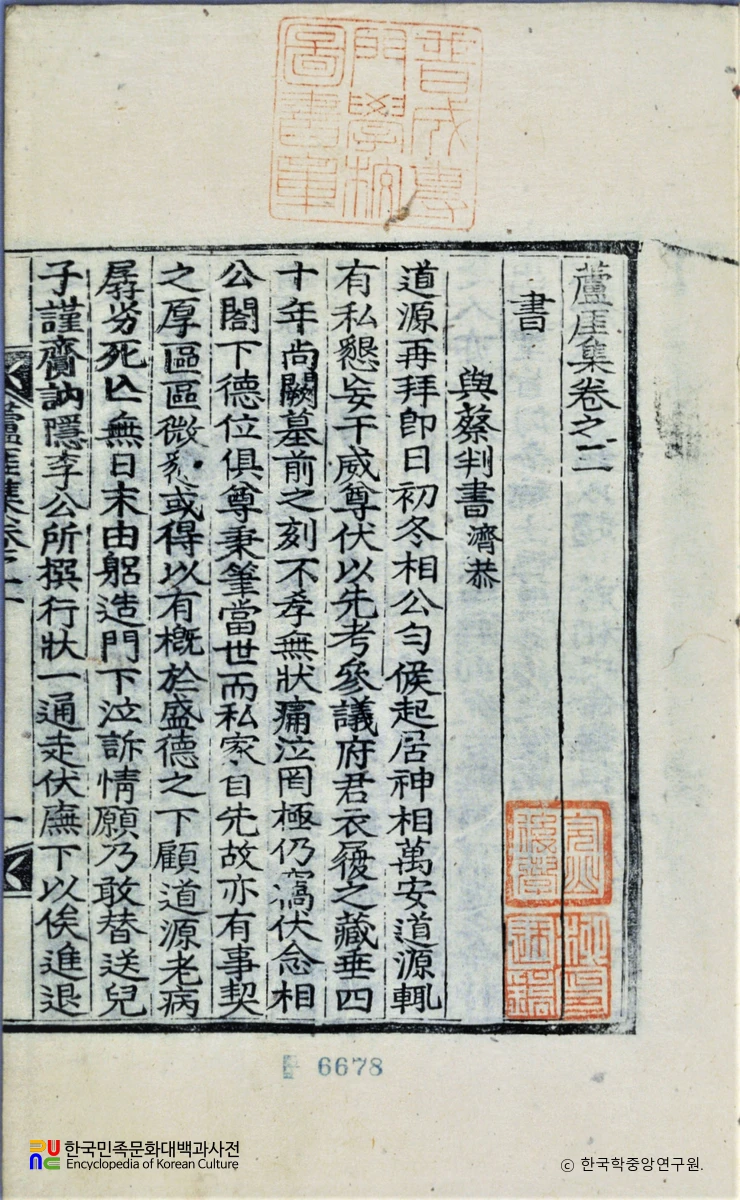 普成專
門學校
圖書章
蘆厓集卷之二
書
與蔡判書濟恭
道源再拜卽日初冬相公勻候起居神相萬安道源輒
有私懇妄干威尊伏以先考參議府君衣履之藏垂四
十年尙闕墓前之刻不孝無狀痛泣罔極仍竊伏念相
公閤下德位俱尊秉筆當世而私家自先故亦有事契
之厚區區微或得以有槪於盛德之下顧道源老病
孱劣死亡無日末由躬造門下泣訴情願乃敢替送兒
子謹齎訥隱李公所撰行狀一通走伏廡下以俟進退
蘆厓集卷之二
一
6678
한국민족문화대백과사전
Encyclopedia of Korean Culture
© 한국학중앙연구원.